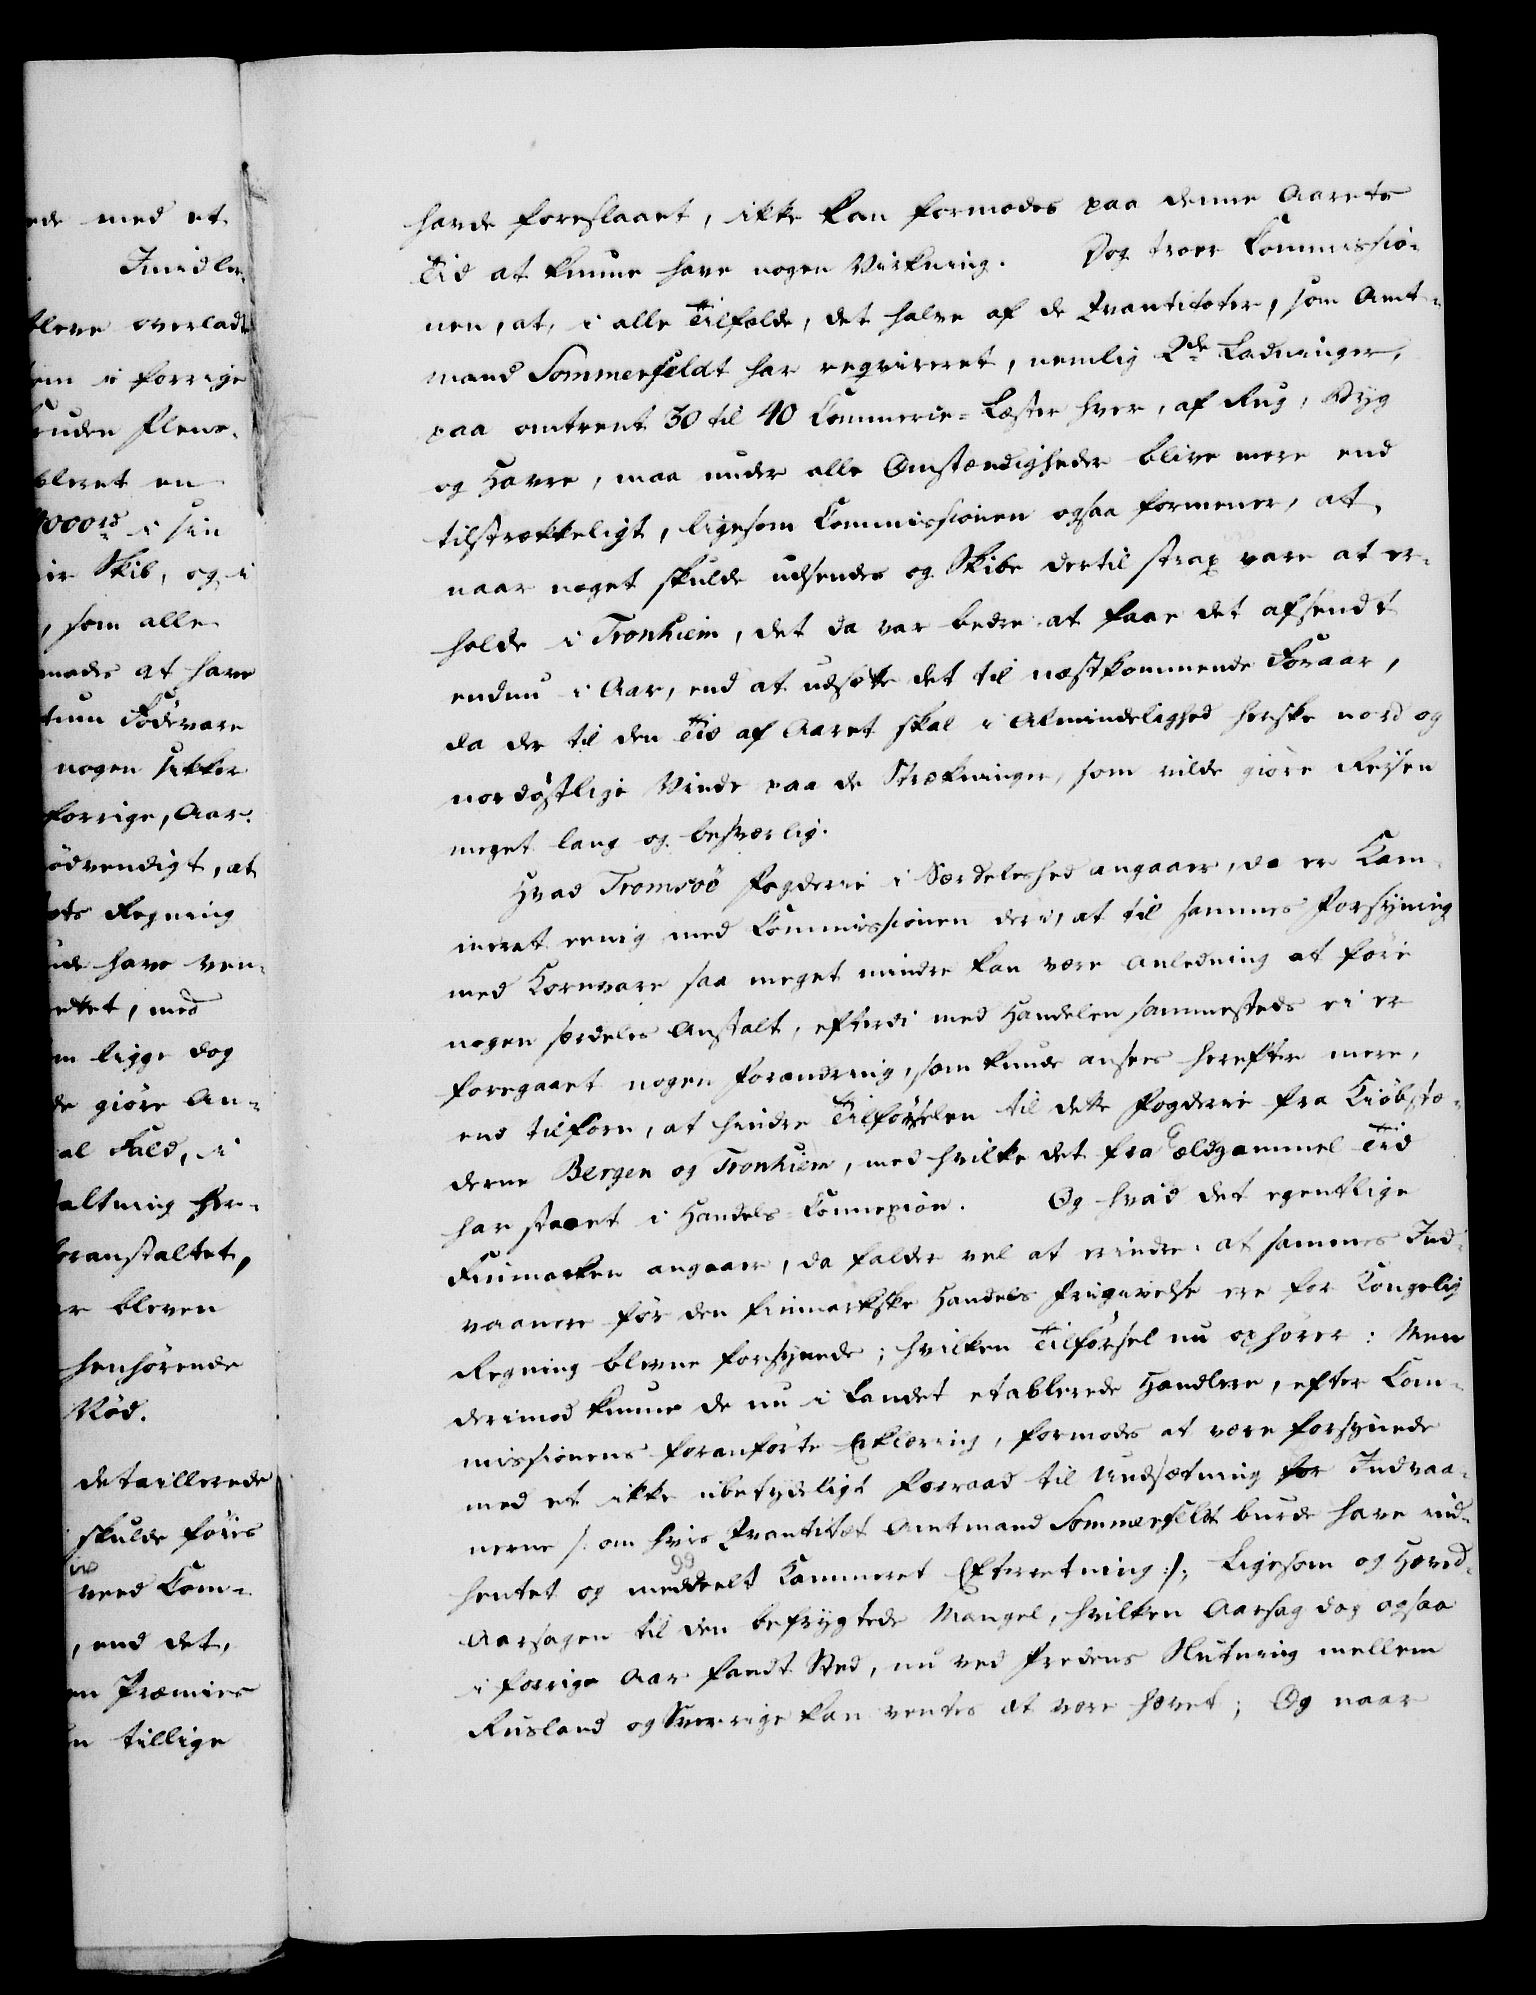 ede med et
Imidler-
bleve overladt
som i forrige
Flens-
bleret en
000 rd i sin
Skib, og i
, som alle
mades at have
tum Födevare
nogen sikker
forrige, Aar.
ödvendigt, at
ets Regning
ide have ven-
ettet, med
m ligge dog
de giöre An-
al Fald, i
staltning her-
foranstaltet,
er bleven
henhörende
Nöd.
detaillerede
skulde föies
veed Com-
, end det,
en Præmies
en tillige
havde foreslaaet, ikke kan formodes paa denne Aarets
Tid at kunne have nogen Virkning. Dog troer Commissio-
nen, at, i alle Tilfælde, det halve af de Qvantiteter, som Amt-
mand Sommerfeldt har reqvireret, nemlig 2de Ladninger,
paa omtrent 30 til 40 Commerce-Læster hver, af Rug, Byg
og Havre, maa under alle Omstændigheder blive mere end
tilstrækkeligt, ligesom Commissionen ogsaa formener, at,
naar noget skulde udsendes og Skibe dertil strax vare at er-
holde i Tronhiem, det da var bedre at faae det afsendt
endnu i Aar, end at udsætte det til næstkommende Foraar,
da der til den Tid af Aaret skal i Almindelighed herske nord og
nordöstlige Vinde paa de Strækninger, som vilde giöre Reisen
meget lang og besværlig.
Hvad Tromsöe Fogderie i Særdeleshed angaaer, da er Kam-
meret eenig med Commissionen deri, at til sammes Forsyning
med Kornvare saa meget mindre kan være Anledning at föie
nogen særdeles Anstalt, efterdi med Handelen sammesteds ei er
foregaaet nogen Forandring, som kunde ansees herefter mere,
end tilforn, at hindre Tilförselen til dette Fogderie fra Kiöbstæ-
derne Bergen og Tronhiem, med hvilke det fra ældgammel Tid
har staaet i Handels-Connexion. Og hvad det egentlige
Finmarken angaaer, da falder vel at erindre: at sammes Ind-
vaanere för den finmarkske Handels Frigivelse ere for Kongelig
Regning blevne forsynede; hvilken Tilförsel nu ophörer: Men
derimod kunne de nu i Landet etablerede Handlere, efter Com-
missionens foranförte Erklæring, formodes at være forsynede
med et ikke ubetydeligt Forraad til Undsætning for Indvaa-
nerne /: om hvis Qvantitet Amtmand Sommerfeldt burde have ind-
hentet og meddeelt Kammeret Efterretning :/; Ligesom og Hoved-
Aarsagen til den befrygtede Mangel, hvilken Aarsag dog ogsaa
i forrige Aar fandt Sted, nu ved Fredens Slutning mellem
Rusland og Sverrige kan ventes at være hævet; Og naar